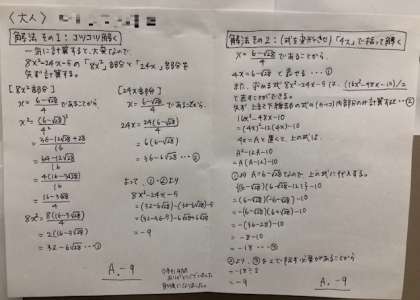 〈大人〉
解法その1:コツコツ解く
一気に計算すると、大変なので
8x²-24x-5の「8x²」部分と「24x」部分を
先ず計算する。
[8x²部分]
x=(6-√28)/4 であることから
x²=(6-√28)²/4²
=(36-12√28+28)/16
=(64-12√28)/16
=4(16-3√28)/16
=(16-3√28)/4
8x²=8(16-3√28)/4
=2(16-3√28)
=32-6√28 …①
[24x部分]
x=(6-√28)/4 であるから、
24x=24(6-√28)/4
=6(6-√28)
=36-6√28 …②
よって、①、②より
8x²-24x-5
=(32-6√28)-(36-6√28)-5
=(32-36-5)-6√28+6√28
=-9
A. -9
解法その2:(式を変形させ)「4x」で括って解く
x=(6-√28)/4 であることから、
4x=6-√28 と表せる …①
また、求める式 8x²-24x-5は、(16x²-48x-10)/2
と表すことができる。
16x²-48x-10
=(4x)²-12(4x)-10
4x=Aと置くと、上の式は、
A²-12A-10
=A(A-12)-10
①よりA=6-√28なので、上の式に代入する。
(6-√28)(6-√28-12)-10
=(6-√28)(-6-√28)-10
=-(6-√28)(6+√28)-10
=-(36-28)-10
=-8-10
=-18 …③
-18÷2
=-9
A. -9